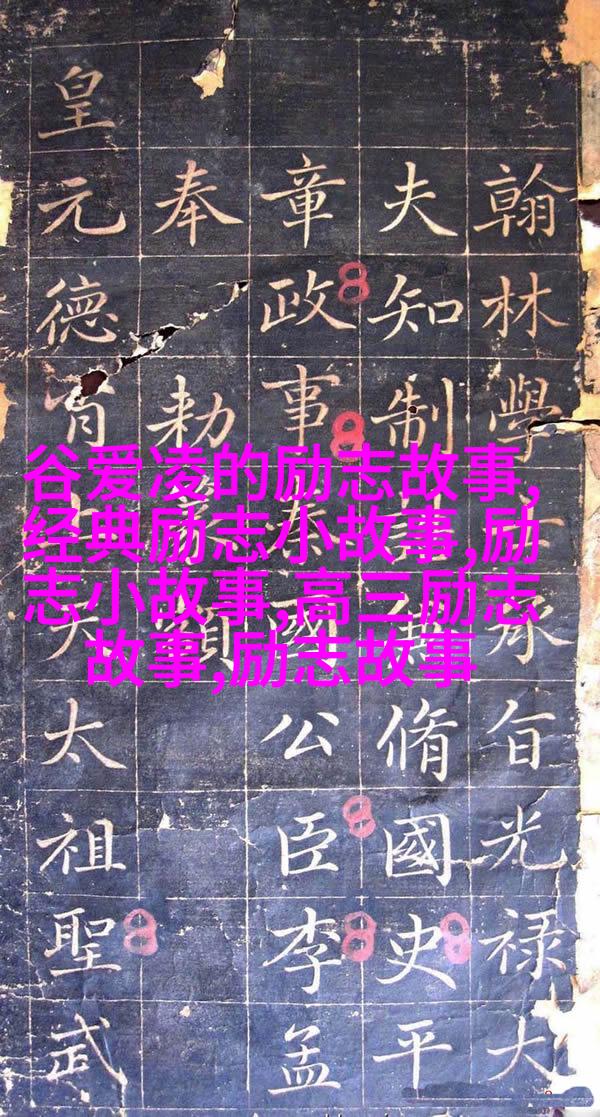 谷爱凌的励志故事,
经典励志小故事,励
志小故事,高三励志
故事,励志故事
翰林學承旨光禄大
夫知制兼脩國史平
章政事國公臣李孟
奉勅
皇元德天太祖聖武